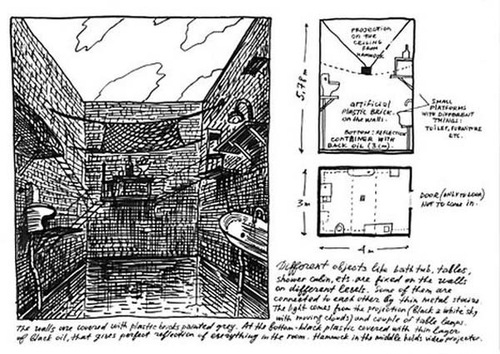 PROJECTION
ON THE
CEILING
FROM
HAMMOCK
5,78 m
artificial
PLASTIC BRICK.
ON THE WALLS.
BOTTOM: REFLECTION
CONTAINER WITH
BACK OIL (3 cm).
SMALL
PLATFORMS
WITH DIFFERENT
THINGS:
TOILET, FURNITURE
ETC.
3 m
4 m
DOOR (ONLY TO LOOK)
NOT TO COME IN.
Different objects like bath tub, tables,
shower cabin, etc are fixed on the walls
on different levels. Some of them are
connected to each other by thin metal stairs.
The light comes from the projection (Black & white sky
with moving clouds) and couple of table lamps.
The walls are covered with plastic bricks painted grey. At the bottom - black plastic covered with thin layer
of Black oil, that gives perfect reflection of everything in the room. Hammock in the middle holds videoprojector.